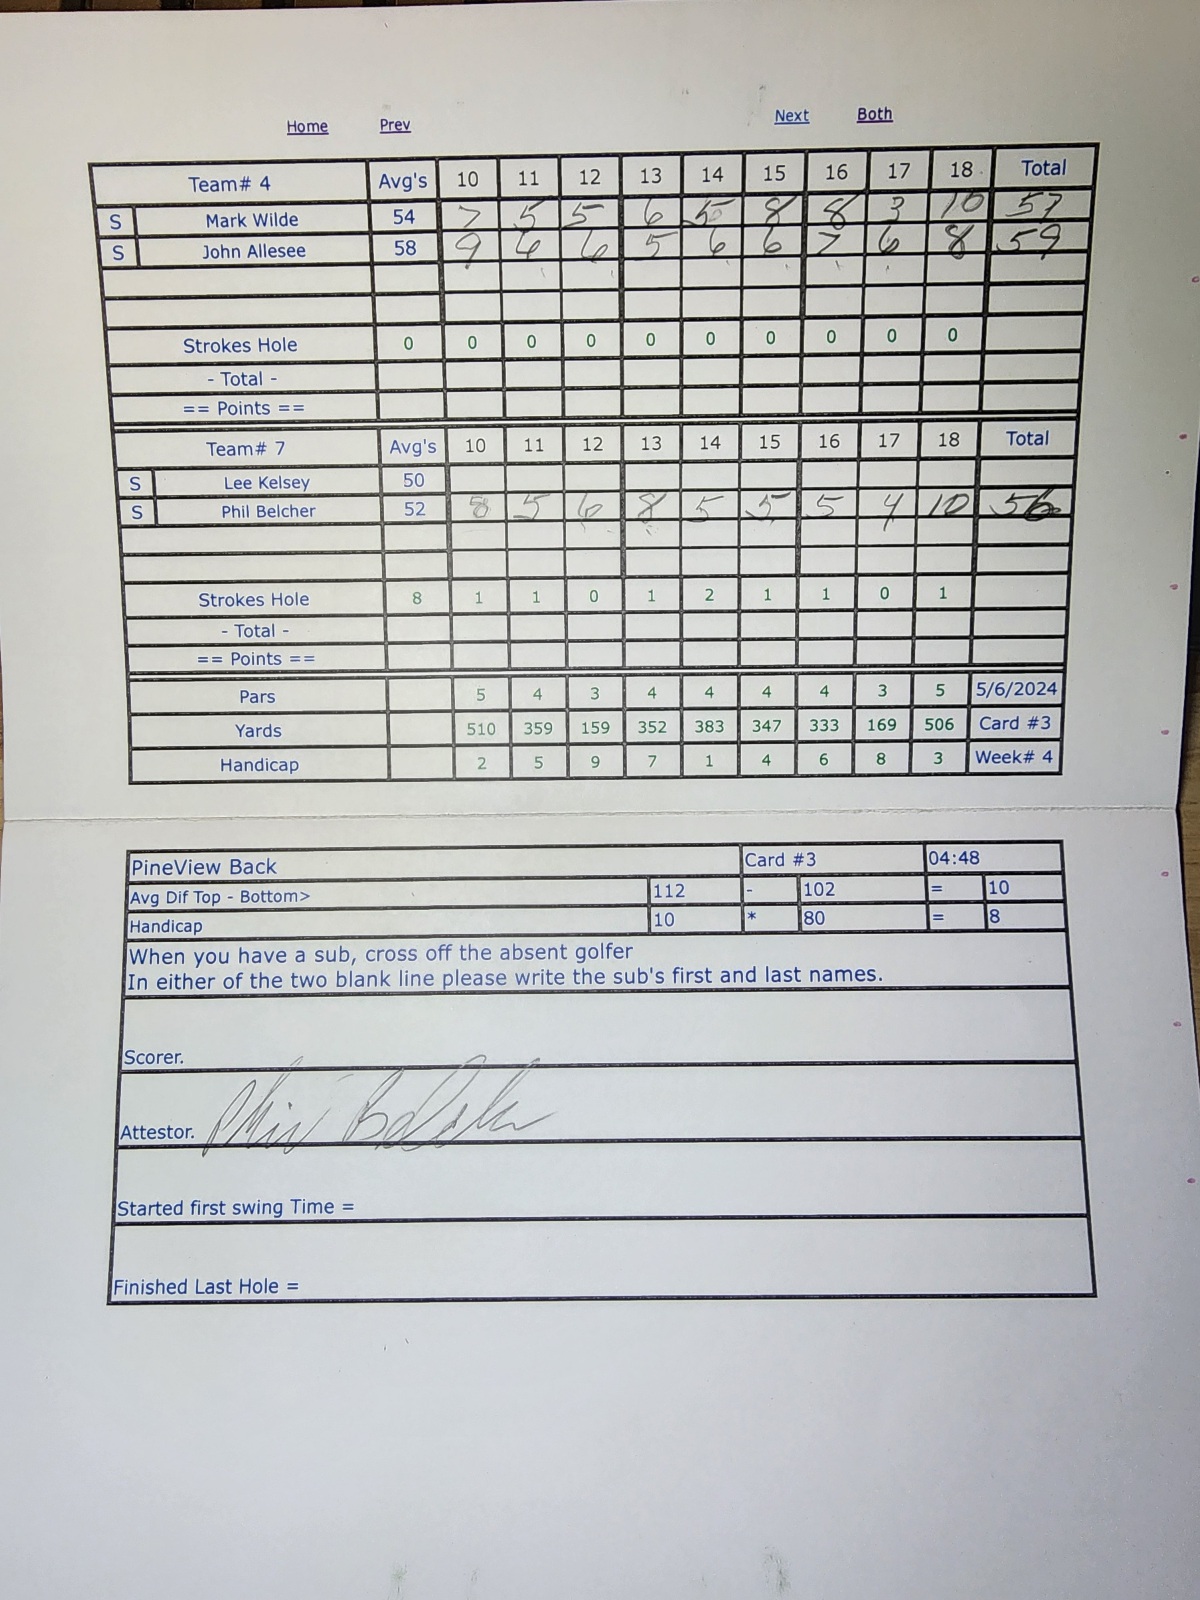 Home Prev Next Both
Team# 4 Avg's 10 11 12 13 14 15 16 17 18 Total
S Mark Wilde 54 7 5 5 6 5 8 8 3 10 57
S John Allesee 58 9 6 6 5 6 6 7 6 8 59
Strokes Hole 0 0 0 0 0 0 0 0 0 0
- Total -
== Points ==
Team# 7 Avg's 10 11 12 13 14 15 16 17 18 Total
S Lee Kelsey 50
S Phil Belcher 52 8 5 6 8 5 5 5 4 10 56
Strokes Hole 8 1 1 0 1 2 1 1 0 1
- Total -
== Points ==
Pars 5 4 3 4 4 4 4 3 5 5/6/2024
Yards 510 359 159 352 383 347 333 169 506 Card #3
Handicap 2 5 9 7 1 4 6 8 3 Week# 4
PineView Back Card #3 04:48
Avg Dif Top - Bottom> 112 - 102 = 10
Handicap 10 * 80 = 8
When you have a sub, cross off the absent golfer
In either of the two blank line please write the sub's first and last names.
Scorer.
Attestor. Phil Belcher
Started first swing Time =
Finished Last Hole =